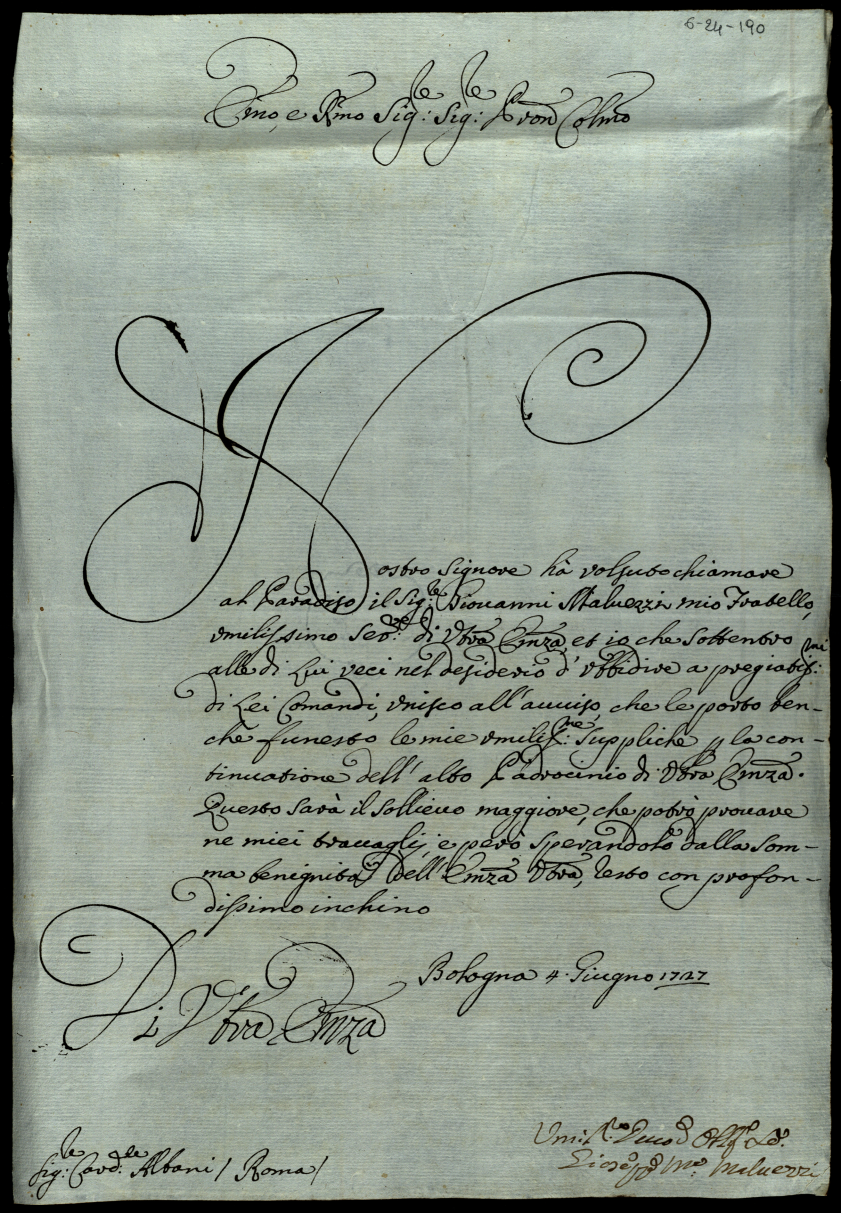 6-24-190
Emo, e Rmo Sig:re Sig:re Pron Colmo
Nostro Signore hà volsuto chiamare
al Paradiso il Sig:re Giouanni Maluezzi mio Fratello,
vmilissimo Ser:re di Vtra Emza, et io che sottentro
alle di Lui veci nel desiderio d'Vbbidire a pregiatis:mi
di Lei Comandi, vnisco all'auuiso che le porto ben-
che funesto le mie vmilis:me suppliche p la con-
tinuatione dell'alto Padrocinio di Vtra Emza.
Questo sarà il sollieuo maggiore, che potrò prouare
ne miei trauaglij, e però sperandolo dalla som-
ma benignità dell'Emza Vtra, resto con profon-
dissimo inchino
Bologna 4. Giugno 1727
Di Vtra Emza
Sig:re Card:le Albani / Roma /
Vmi:
Maluezzi